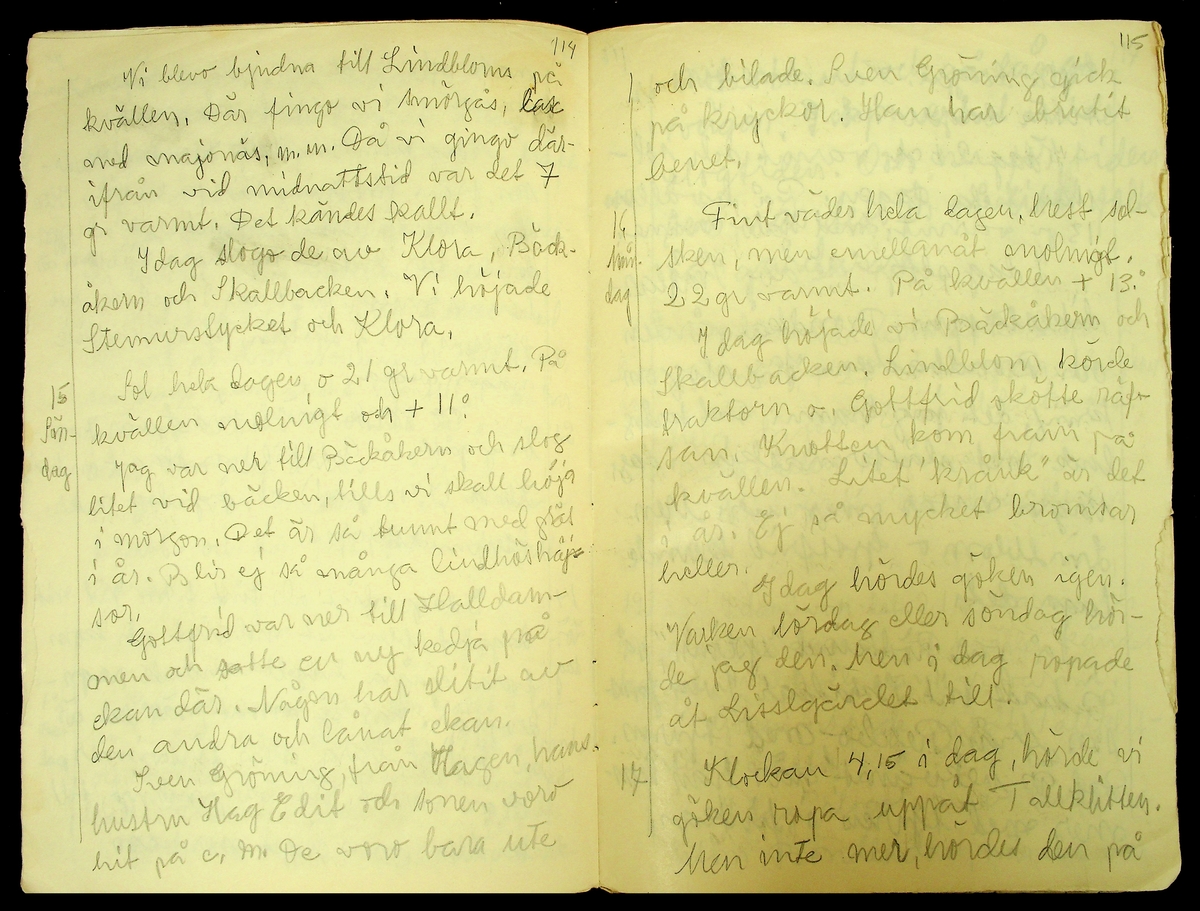 114
Vi blevo bjudna till Lindbloms på
kvällen. Där fingo vi smörgås, lax
med majonäs, m.m. Då vi gingo där-
ifrån vid midnattstid var det 7
gr varmt. Det kändes kallt.
Idag slogo de av Klora, Bäck-
åkern och Skallbacken. Vi höjade
Stemurstycket och Klora.
15
Sön-
dag
Sol hela dagen o 21 gr varmt. På
kvällen molnigt och + 11°.
Jag var ner till Bäckåkern och slog
litet vid bäcken, tills vi skall höja
i morgon. Det är så tunnt med gräs
i år. Blir ej så många lindhöshäj-
sor.
Gottfrid var ner till Halldam-
men och satte en ny kedja på
ekan där. Någon har slitit av
den andra och lånat ekan.
Sven Gröning, från Hagen, hans
hustru Hag Edit och sonen voro
hit på e.m. De voro bara ute
115
och bilade. Sven Gröning gick
på kryckor. Han har brutit
benet.
16
Mån-
dag
Fint väder hela dagen. Mest sol-
sken, men emellanåt molnigt.
22 gr varmt. På kvällen + 13°.
Idag höjade vi Bäckåkern och
Skallbacken. Lindblom körde
traktorn o. Gottfrid skötte räf-
san. Knotten kom fram på
kvällen. Litet "krånk" är det
i år. Ej så mycket bromsar
heller.
Idag hördes göken igen.
Varken lördag eller söndag hör-
de jag den. Men i dag ropade
åt Lisslgärdet till.
17
Klockan 4,15 i dag, hörde vi
göken ropa uppåt Tallklitten.
Men inte mer, hördes den på